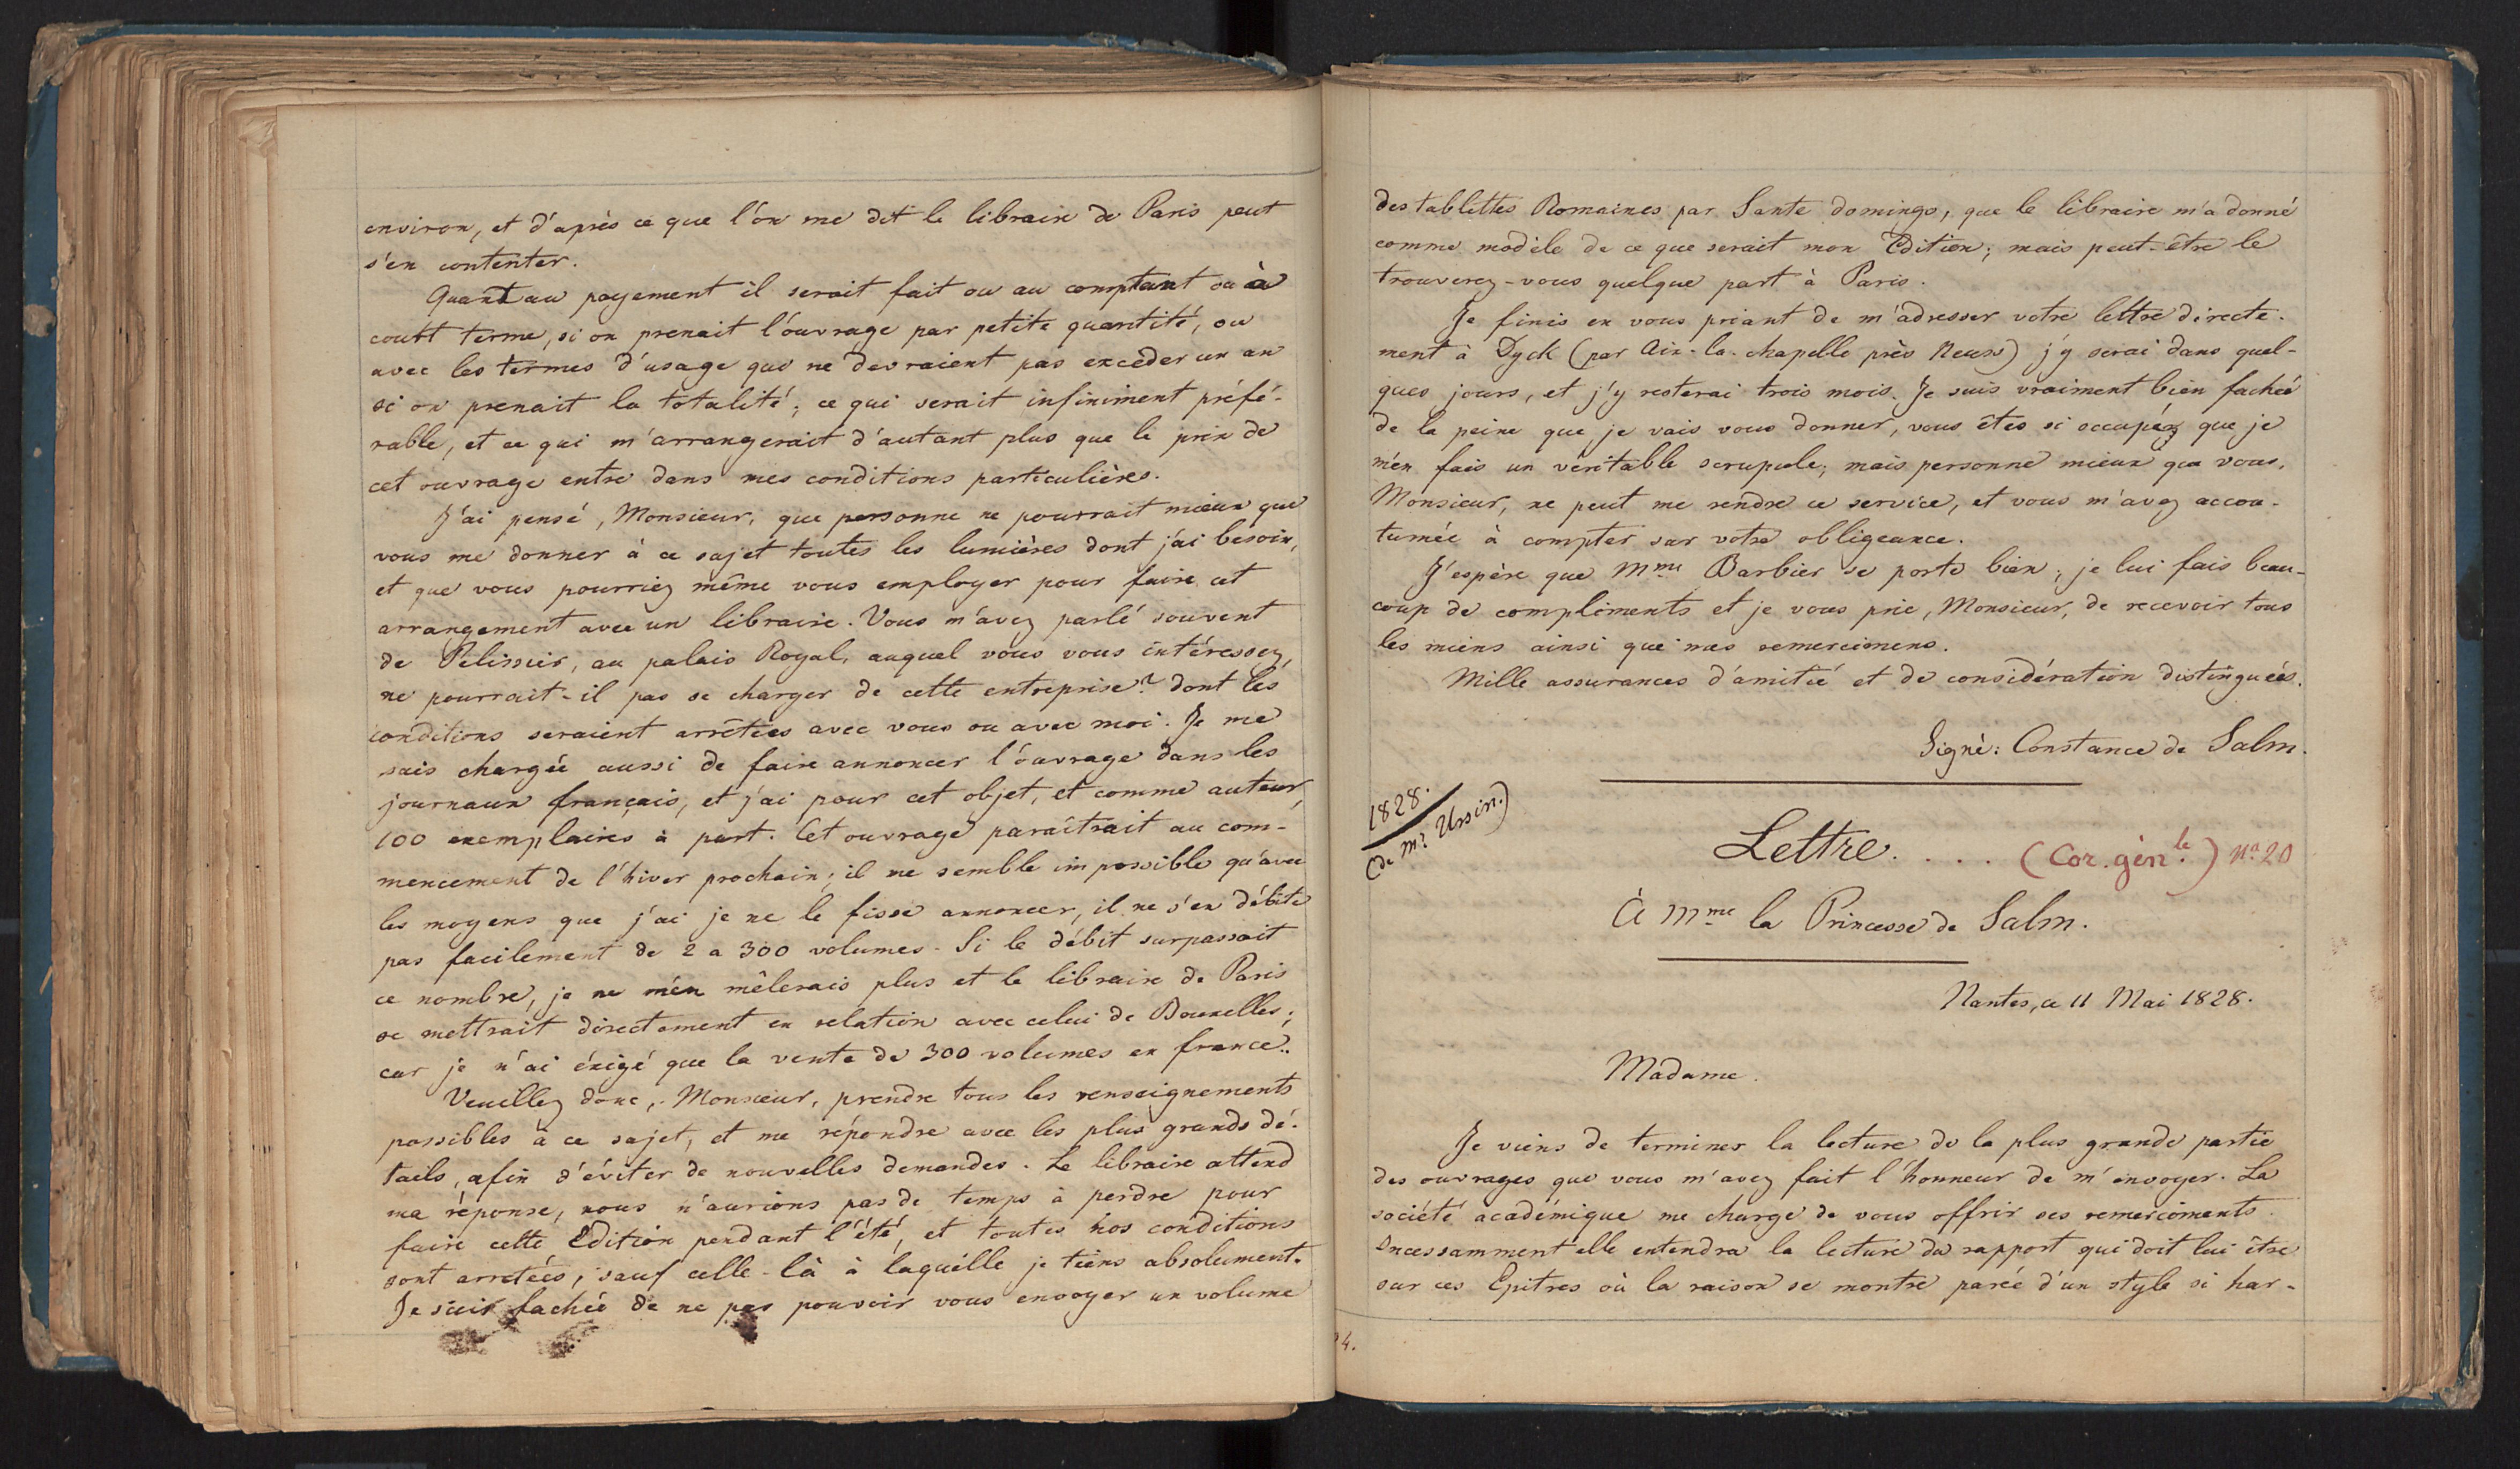 environ, et d'après ce que l'on me dit le libraire de Paris peut
s'en contenter.
Quant au payement il serait fait ou au comptant ou à
court terme, si on prenait l'ouvrage par petite quantité, ou
avec les termes d'usage qui ne devraient pas excéder un an
si on prenait la totalité; ce qui serait infiniment préfé-
rable, et ce qui m'arrangerait d'autant plus que le prix de
cet ouvrage entre dans mes conditions particulières.
J'ai pensé, Monsieur, que personne ne pourrait mieux que
vous me donner à ce sujet toutes les lumières dont j'ai besoin,
et que vous pourriez même vous employer pour faire cet
arrangement avec un libraire. Vous m'avez parlé souvent
de Pélissier, au palais Royal, auquel vous vous intéressez,
ne pourrait-il pas se charger de cette entreprise? dont les
conditions seraient arrêtées avec vous ou avec moi. Je me
suis chargée aussi de faire annoncer l'ouvrage dans les
journaux français, et j'ai pour cet objet, et comme auteur,
100 exemplaires à part. Cet ouvrage paraîtrait au com-
mencement de l'hiver prochain; il me semble impossible qu'avec
les moyens que j'ai je ne le fisse annoncer, il ne s'en débite
pas facilement de 2 a 300 volumes. Si le débit surpassait
ce nombre, je ne m'en mêlerais plus et le libraire de Paris
se mettrait directement en relation avec celui de Bruxelles;
car je n'ai éxigé que la vente de 300 volumes en france.
Veuillez donc, Monsieur, prendre tous les renseignements
possibles à ce sujet, et me répondre avec les plus grands dé-
tails, afin d'éviter de nouvelles demandes. Le libraire attend
ma réponse, nous n'aurions pas de temps à perdre pour
faire cette Edition pendant l'été, et toutes nos conditions
sont arretées, sauf celle-là à laquélle je tiens absolument.
Je suis fachée de ne pas pouvoir vous envoyer un volume
des tablettes Romaines par Sante domingo, que le libraire m'a donné
comme modèle de ce que serait mon Edition; mais peut-être le
trouverez-vous quelque part à Paris.
Je finis en vous priant de m'adresser votre lettre directe-
ment à Dyck (par Aix-la-chapelle près Neuss) j'y serai dans quel-
ques jours, et j'y resterai trois mois. Je suis vraiment bien fachée
de la peine que je vais vous donner, vous êtes si occupé que je
m'en fais un véritable scrupule; mais personne mieux que vous,
Monsieur, ne peut me rendre ce service, et vous m'avez accou-
tumée à compter sur votre obligeance.
J'espère que Mme Barbier se porte bien; je lui fais beau-
coup de compliments et je vous prie, Monsieur, de recevoir tous
les miens ainsi que mes remercimens.
Mille assurances d'amitié et de considération distinguées.
Signé: Constance de Salm.
1828.
(de Mr. Ursin.)
Lettre.... (Cor. génle.) No. 20
À Mme la Princesse de Salm.
Nantes, ce 11 Mai 1828.
Madame.
Je viens de terminer la lecture de la plus grande partie
des ouvrages que vous m'avez fait l'honneur de m'envoyer. La
société académique me charge de vous offrir ses remerciments.
Incessamment elle entendra la lecture du rapport qui doit lui être
sur ces Epitres où la raison se montre parée d'un style si har-
4.